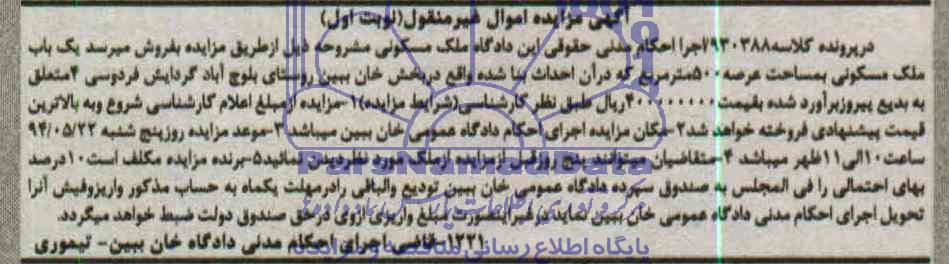 آگهی مزایده اموال غیرمنقول(نوبت اول)
درپرونده کلاسه۹۳۰۳۸۸/اجرا احکام مدنی حقوقی این دادگاه ملک مسکونی مشروحه ذیل ازطریق مزایده بفروش میرسد یک باب
ملک مسکونی بمساحت عرصه۵۰۰مترمربع که درآن احداث بنا شده واقع دربخش خان ببین روستای بلوچ آباد گردایش فردوسی ۴متعلق
به بدیع پیروزبرآورد شده بقیمت۴۰۰۰۰۰۰۰۰ریال طبق نظر کارشناسی(شرایط مزایده)۱-مزایده ازمبلغ اعلام کارشناسی شروع وبه بالاترین
قیمت پیشنهادی فروخته خواهد شد۲-مکان مزایده اجرای احکام دادگاه عمومی خان ببین میباشد ۳-موعد مزایده روزپنج شنبه ۹۴/۰۵/۲۲
ساعت۱۰الی۱۱ظهر میباشد ۴-متقاضیان میتوانند پنج روزقبل ازمزایده ازملک مورد نظردیدن نمائید۵-برنده مزایده مکلف است۱۰درصد
بهای احتمالی را فی المجلس به صندوق سپرده دادگاه عمومی خان ببین تودیع والباقی رادرمهلت یکماه به حساب مذکور واریزوفیش آنرا
تحویل اجرای احکام مدنی دادگاه عمومی خان ببین نماید.در غیراینصورت مبلغ واریزی ازوی درحق صندوق دولت ضبط خواهد میگردد.
۱۲۲۱-قاضی اجرای احکام مدنی دادگاه خان ببین- تیموری
ParsNamadData
پایگاه اطلاع رسانی مناقصه و مزایده